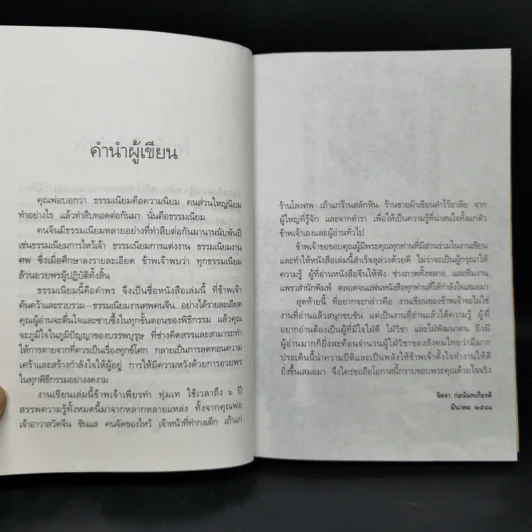 คำนำผู้เขียน
คุณพ่อบอกว่า ธรรมเนียมคือความนิยม คนส่วนใหญ่นิยม
ทำอย่างไร แล้วทำสืบทอดต่อกันมา นั่นคือธรรมเนียม
คนจีนมีธรรมเนียมหลายอย่างที่ทำสืบต่อกันมานานนับพันปี
เช่นธรรมเนียมการไหว้เจ้า ธรรมเนียมการแต่งงาน ธรรมเนียมงาน
ศพ ซึ่งเมื่อศึกษาลงรายละเอียด ข้าพเจ้าพบว่า ทุกธรรมเนียม
ล้วนอวยพรผู้ปฏิบัติทั้งสิ้น
ธรรมเนียมนี้คือคำพร จึงเป็นชื่อหนังสือเล่มนี้ ที่ข้าพเจ้า
ค้นคว้าและรวบรวม–ธรรมเนียมงานศพคนจีน...อย่างได้รายละเอียด
คุณผู้อ่านจะตื่นใจและซาบซึ้งในทุกขั้นตอนของพิธีกรรม แล้วคุณ
จะภูมิใจในภูมิปัญญาของบรรพบุรุษ ที่ช่างคิดสรรและสามารถทำ
ให้การตายจากที่ควรเป็นเรื่องทุกข์โศก กลายเป็นการลดทอนความ
เศร้าและสร้างกำลังใจให้ผู้อยู่ การให้มีความหวังด้วยการอวยพร
ในทุกพิธีกรรมอย่างงดงาม
งานเขียนเล่มนี้ข้าพเจ้าเพียรทำ ทุ่มเท ใช้เวลาถึง ๖ ปี
สรรพความรู้ทั้งหมดนี้มาจากหลากหลายแหล่ง ทั้งจากคุณพ่อ
เจ้าอาวาสวัดจีน ซินแส คนจัดของไหว้ เจ้าหน้าที่ทำกงเต็ก เถ้าแก่
ร้านโลงศพ เถ้าแก่ร้านสลักหิน ร้านขายผ้าเขียนคำไว้อาลัย จาก
ผู้ใหญ่ที่รู้จัก และจากตำรา เพื่อให้เป็นความรู้ที่น่าสนใจทั้งแก่ตัว
ข้าพเจ้าเองและผู้อ่านทั่วไป
ข้าพเจ้าขอขอบคุณผู้มีพระคุณทุกท่านที่มีส่วนร่วมในงานเขียน
และทำให้หนังสือเล่มนี้สำเร็จลุล่วงด้วยดี ไม่ว่าจะเป็นผู้กรุณาให้
ความรู้ ผู้ที่อ่านหนังสือจีนให้ฟัง ช่างภาพทั้งหลาย และทีมงาน
แพรวสำนักพิมพ์ ตลอดจนแฟนหนังสือทุกท่านที่ให้กำลังใจเสมอมา
สุดท้ายนี้ ที่อยากจะกล่าวคือ งานเขียนของข้าพเจ้าจะไม่ใช่
งานที่อ่านแล้วสนุกขบขัน แต่จะเป็นงานที่อ่านแล้วได้ความรู้ ผู้ที่
อยากอ่านต้องเป็นผู้ที่มีใจใฝ่ดี ใฝ่วิชา และใฝ่พัฒนาตน ยิ่งมี
ผู้อ่านมากก็ยิ่งสะท้อนว่าจำนวนผู้ใฝ่วิชาของสังคมไทยเรามีมาก
ประเด็นนี้นำความปีติและเป็นพลังให้ข้าพเจ้าตั้งใจทำงานให้ดี
ยิ่งขึ้นเสมอมา จึงใคร่ขอถือโอกาสนี้กราบขอบพระคุณด้วยใจจริง
จิตรา ก่อนันทเกียรติ
มีนาคม ๒๕๔๑